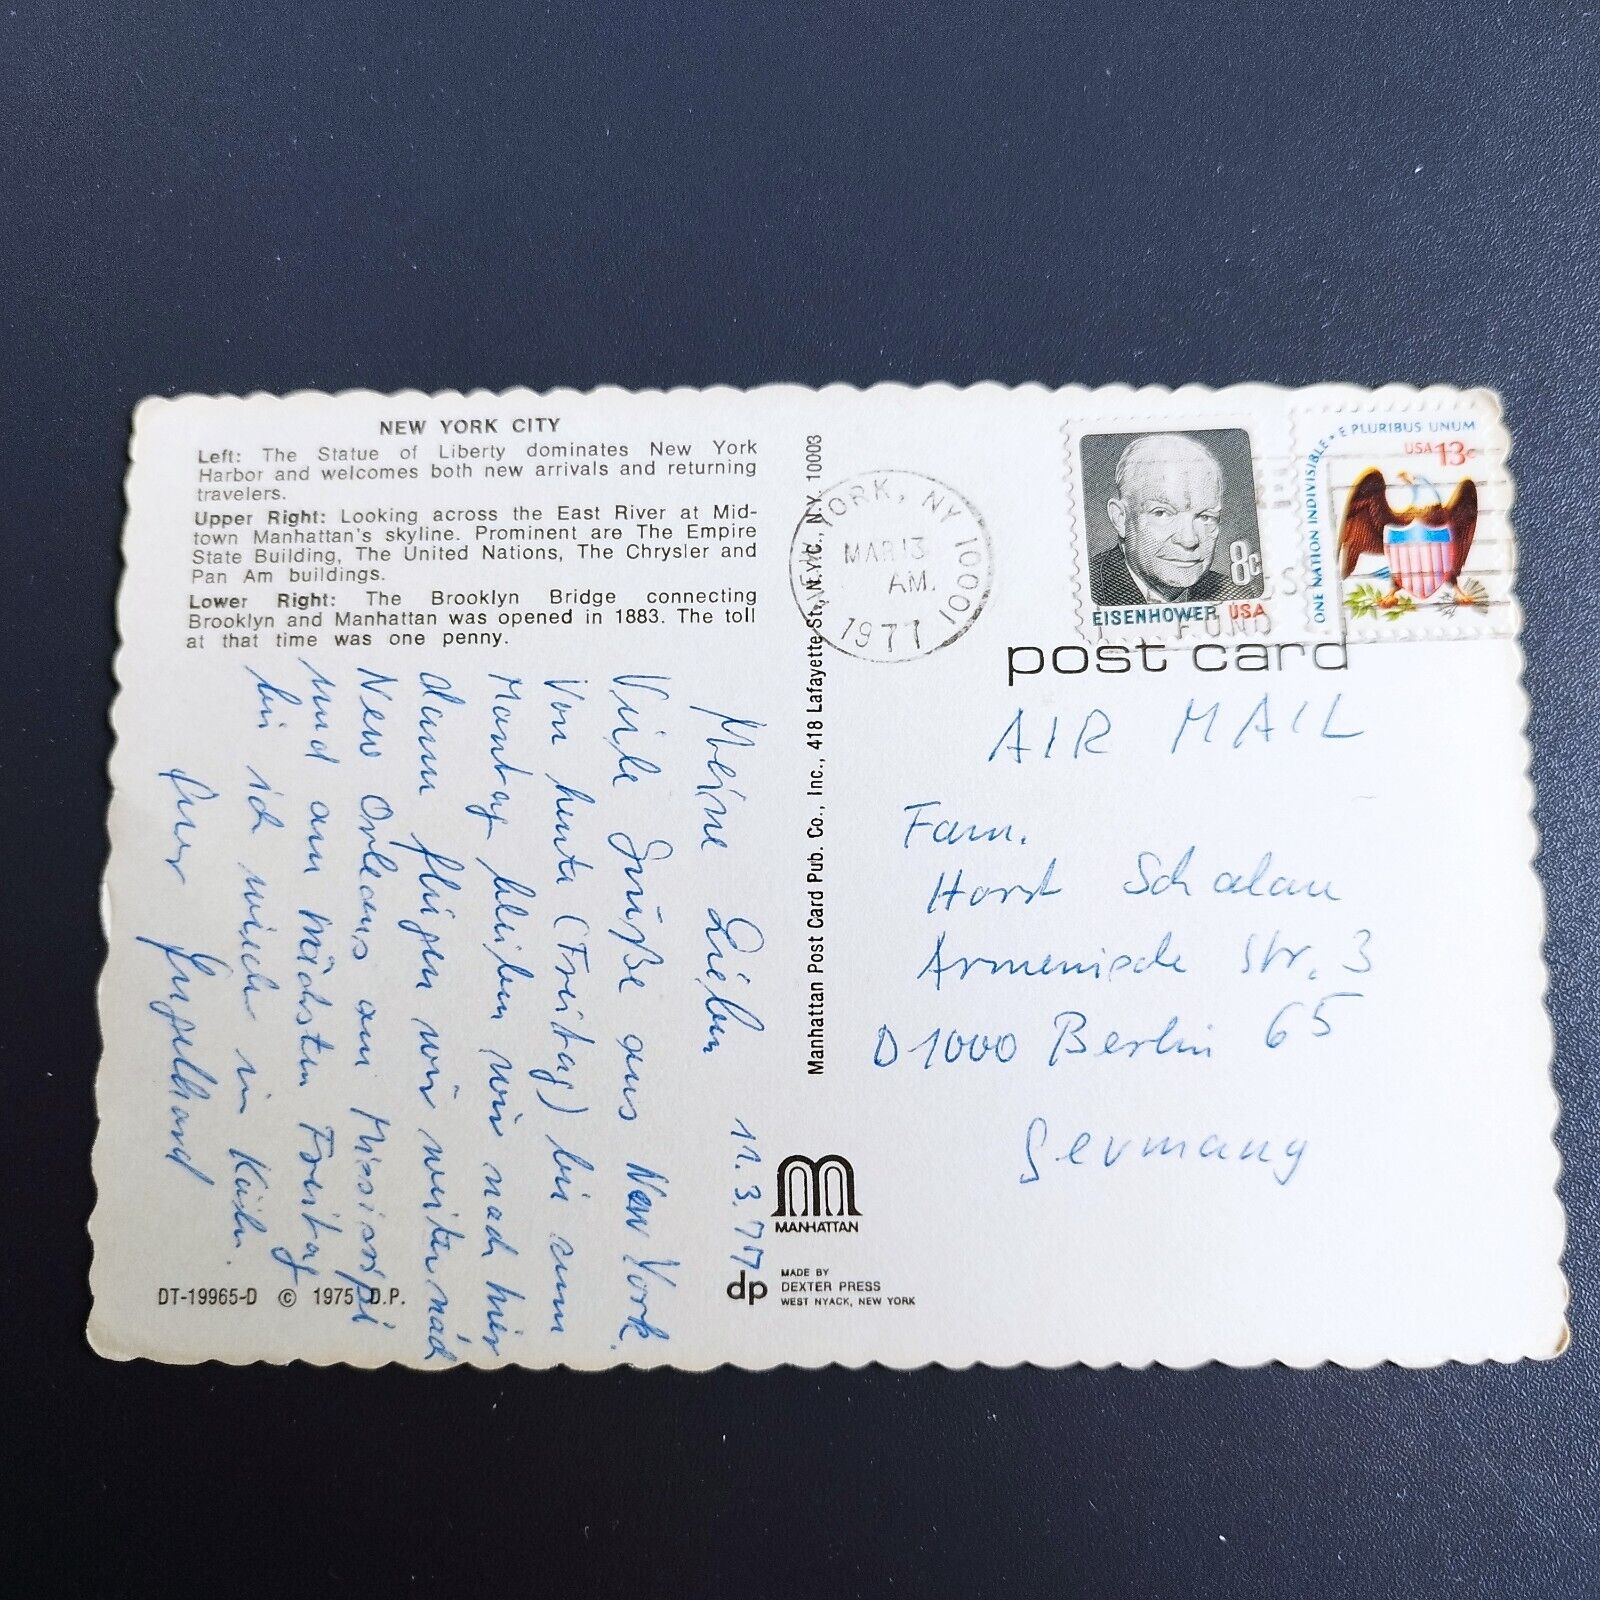 NEW YORK CITY
Left: The Statue of Liberty dominates New York
Harbor and welcomes both new arrivals and returning
travelers.
Upper Right: Looking across the East River at Mid-
town Manhattan's skyline. Prominent are The Empire
State Building, The United Nations, The Chrysler and
Pan Am buildings.
Lower Right: The Brooklyn Bridge connecting
Brooklyn and Manhattan was opened in 1883. The toll
at that time was one penny.
11.3.77
Meine Lieben
Viele Grüße aus New York.
Von heute (Freitag) bis zum
Montag bleiben wir nach hier
dann fliegen wir weiter nach
New Orleans am Missisippi
und am nächsten Freitag
bin ich wieder in Köln.
Euer Engelhard
DT-19965-D © 1975 D.P.
Manhattan Post Card Pub. Co., Inc., 418 Lafayette St., N.Y.C., N.Y. 10003
MANHATTAN
dp
MADE BY
DEXTER PRESS
WEST NYACK, NEW YORK
NEW YORK, NY 10001
MAR 13
AM
1977
FUND
EISENHOWER USA
8c
ONE NATION INDIVISIBLE • E PLURIBUS UNUM
USA 13c
post card
AIR MAIL
Fam.
Horst Schalau
Armenische Str. 3
D 1000 Berlin 65
Germany